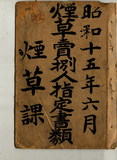 昭和十五年六月
煙草賣捌人指定書類
煙草課